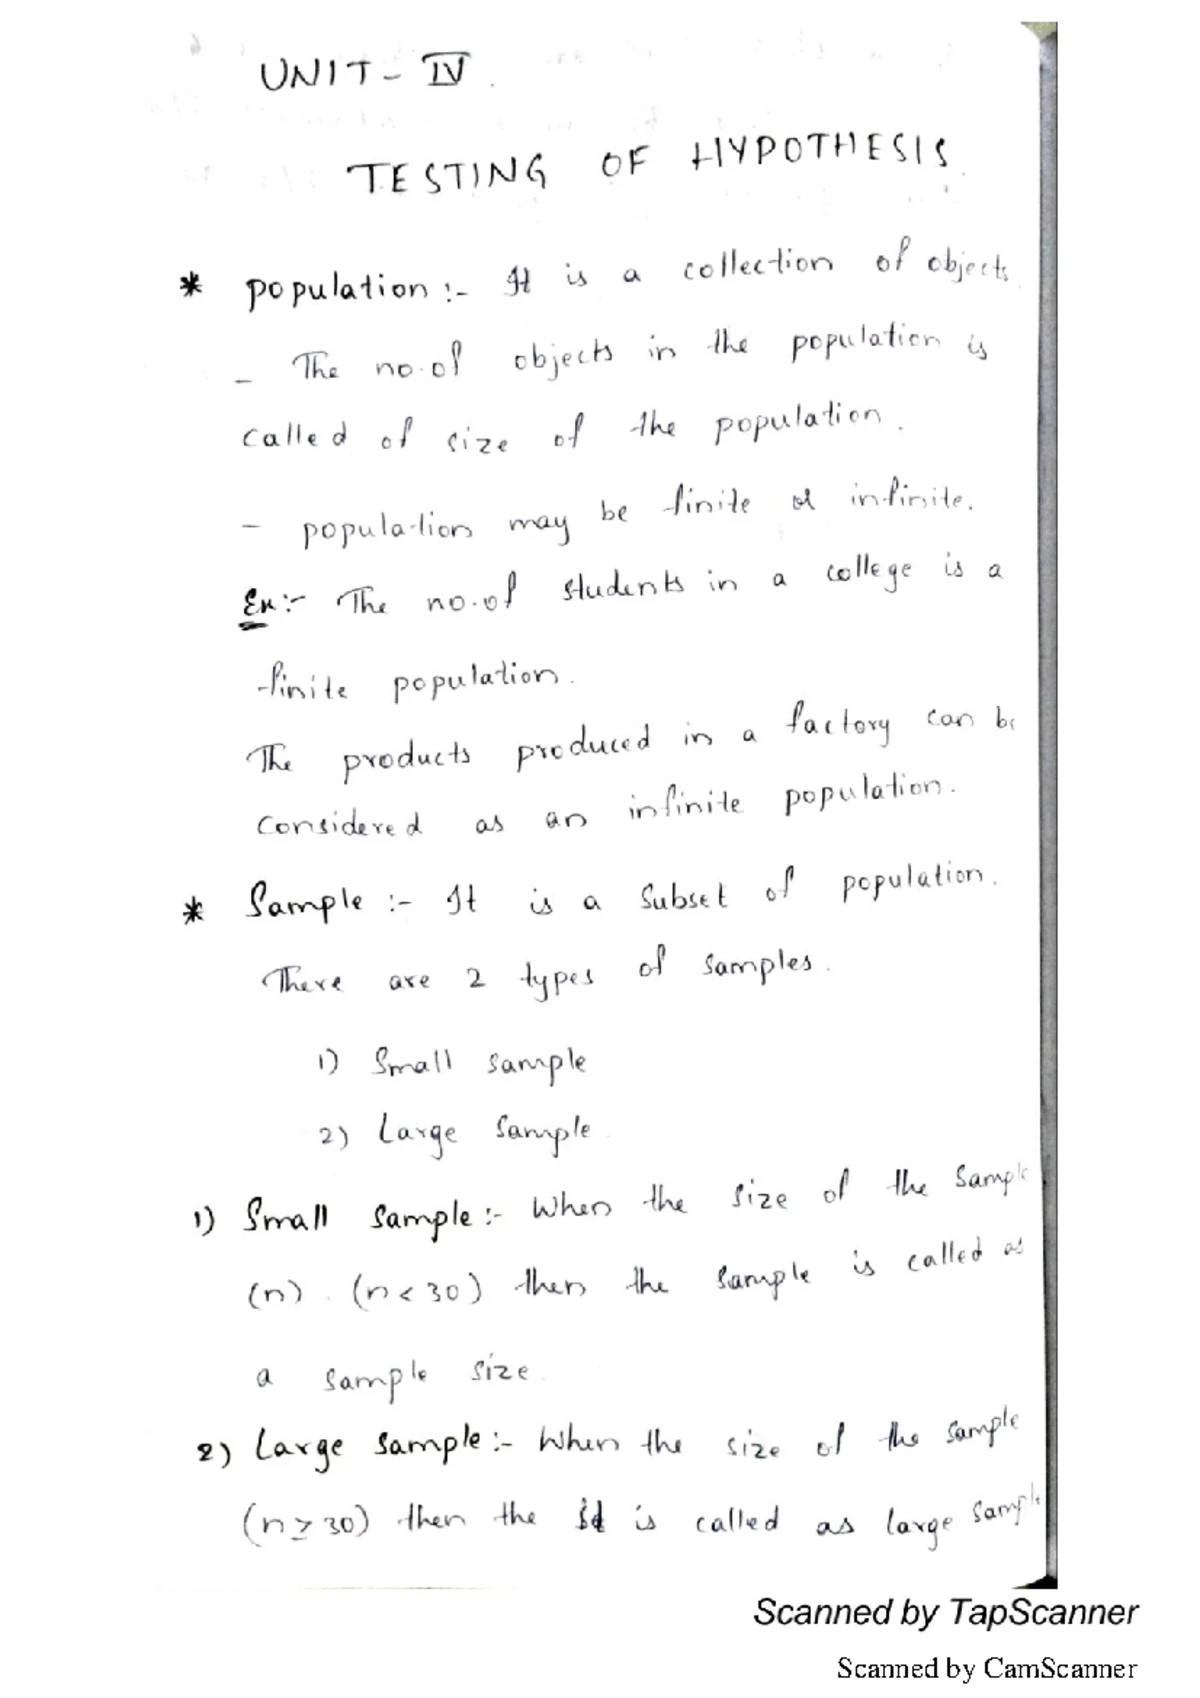 UNIT - IV.
TESTING OF HYPOTHESIS
* population :- It is a collection of objects.
- The no.of objects in the population is
called of size of the population.
- population may be finite or infinite.
Ex:- The no.of students in a college is a
finite population.
The products produced in a factory can be
considered as an infinite population.
* Sample :- It is a subset of population.
There are 2 types of samples.
1) Small sample
2) Large sample
1) Small sample :- When the size of the sample
(n) . (n < 30) then the sample is called as
a sample size.
2) Large sample :- When the size of the sample
(n ≥ 30) then the is called as large sample
Scanned by TapScanner
Scanned by CamScanner